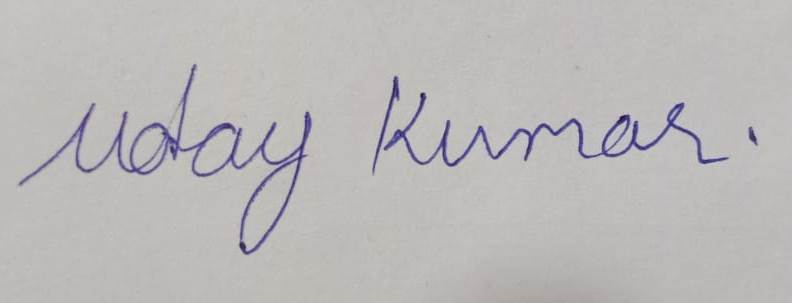 Uday Kumar.